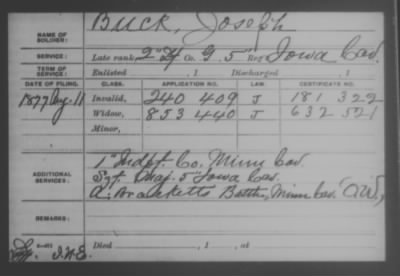 NAME OF SOLDIER: Buck, Joseph
SERVICE: Late rank, 2" Lt Co. G 5" Reg't Iowa Cav.
TERM OF SERVICE: Enlisted , 1 Discharged , 1
DATE OF FILING. CLASS. APPLICATION NO. LAW. CERTIFICATE NO.
1877 Aug. 11 Invalid, 240 409 J 181 322
Widow, 853 440 J 632 521
Minor,
1" Indpt. Co. Minn Cav.
ADDITIONAL SERVICES: Sgt. Maj. 5" Iowa Cav.
A, Bracketts Battn, Minn Cav. C.W.,
REMARKS:
Died , 1 , at